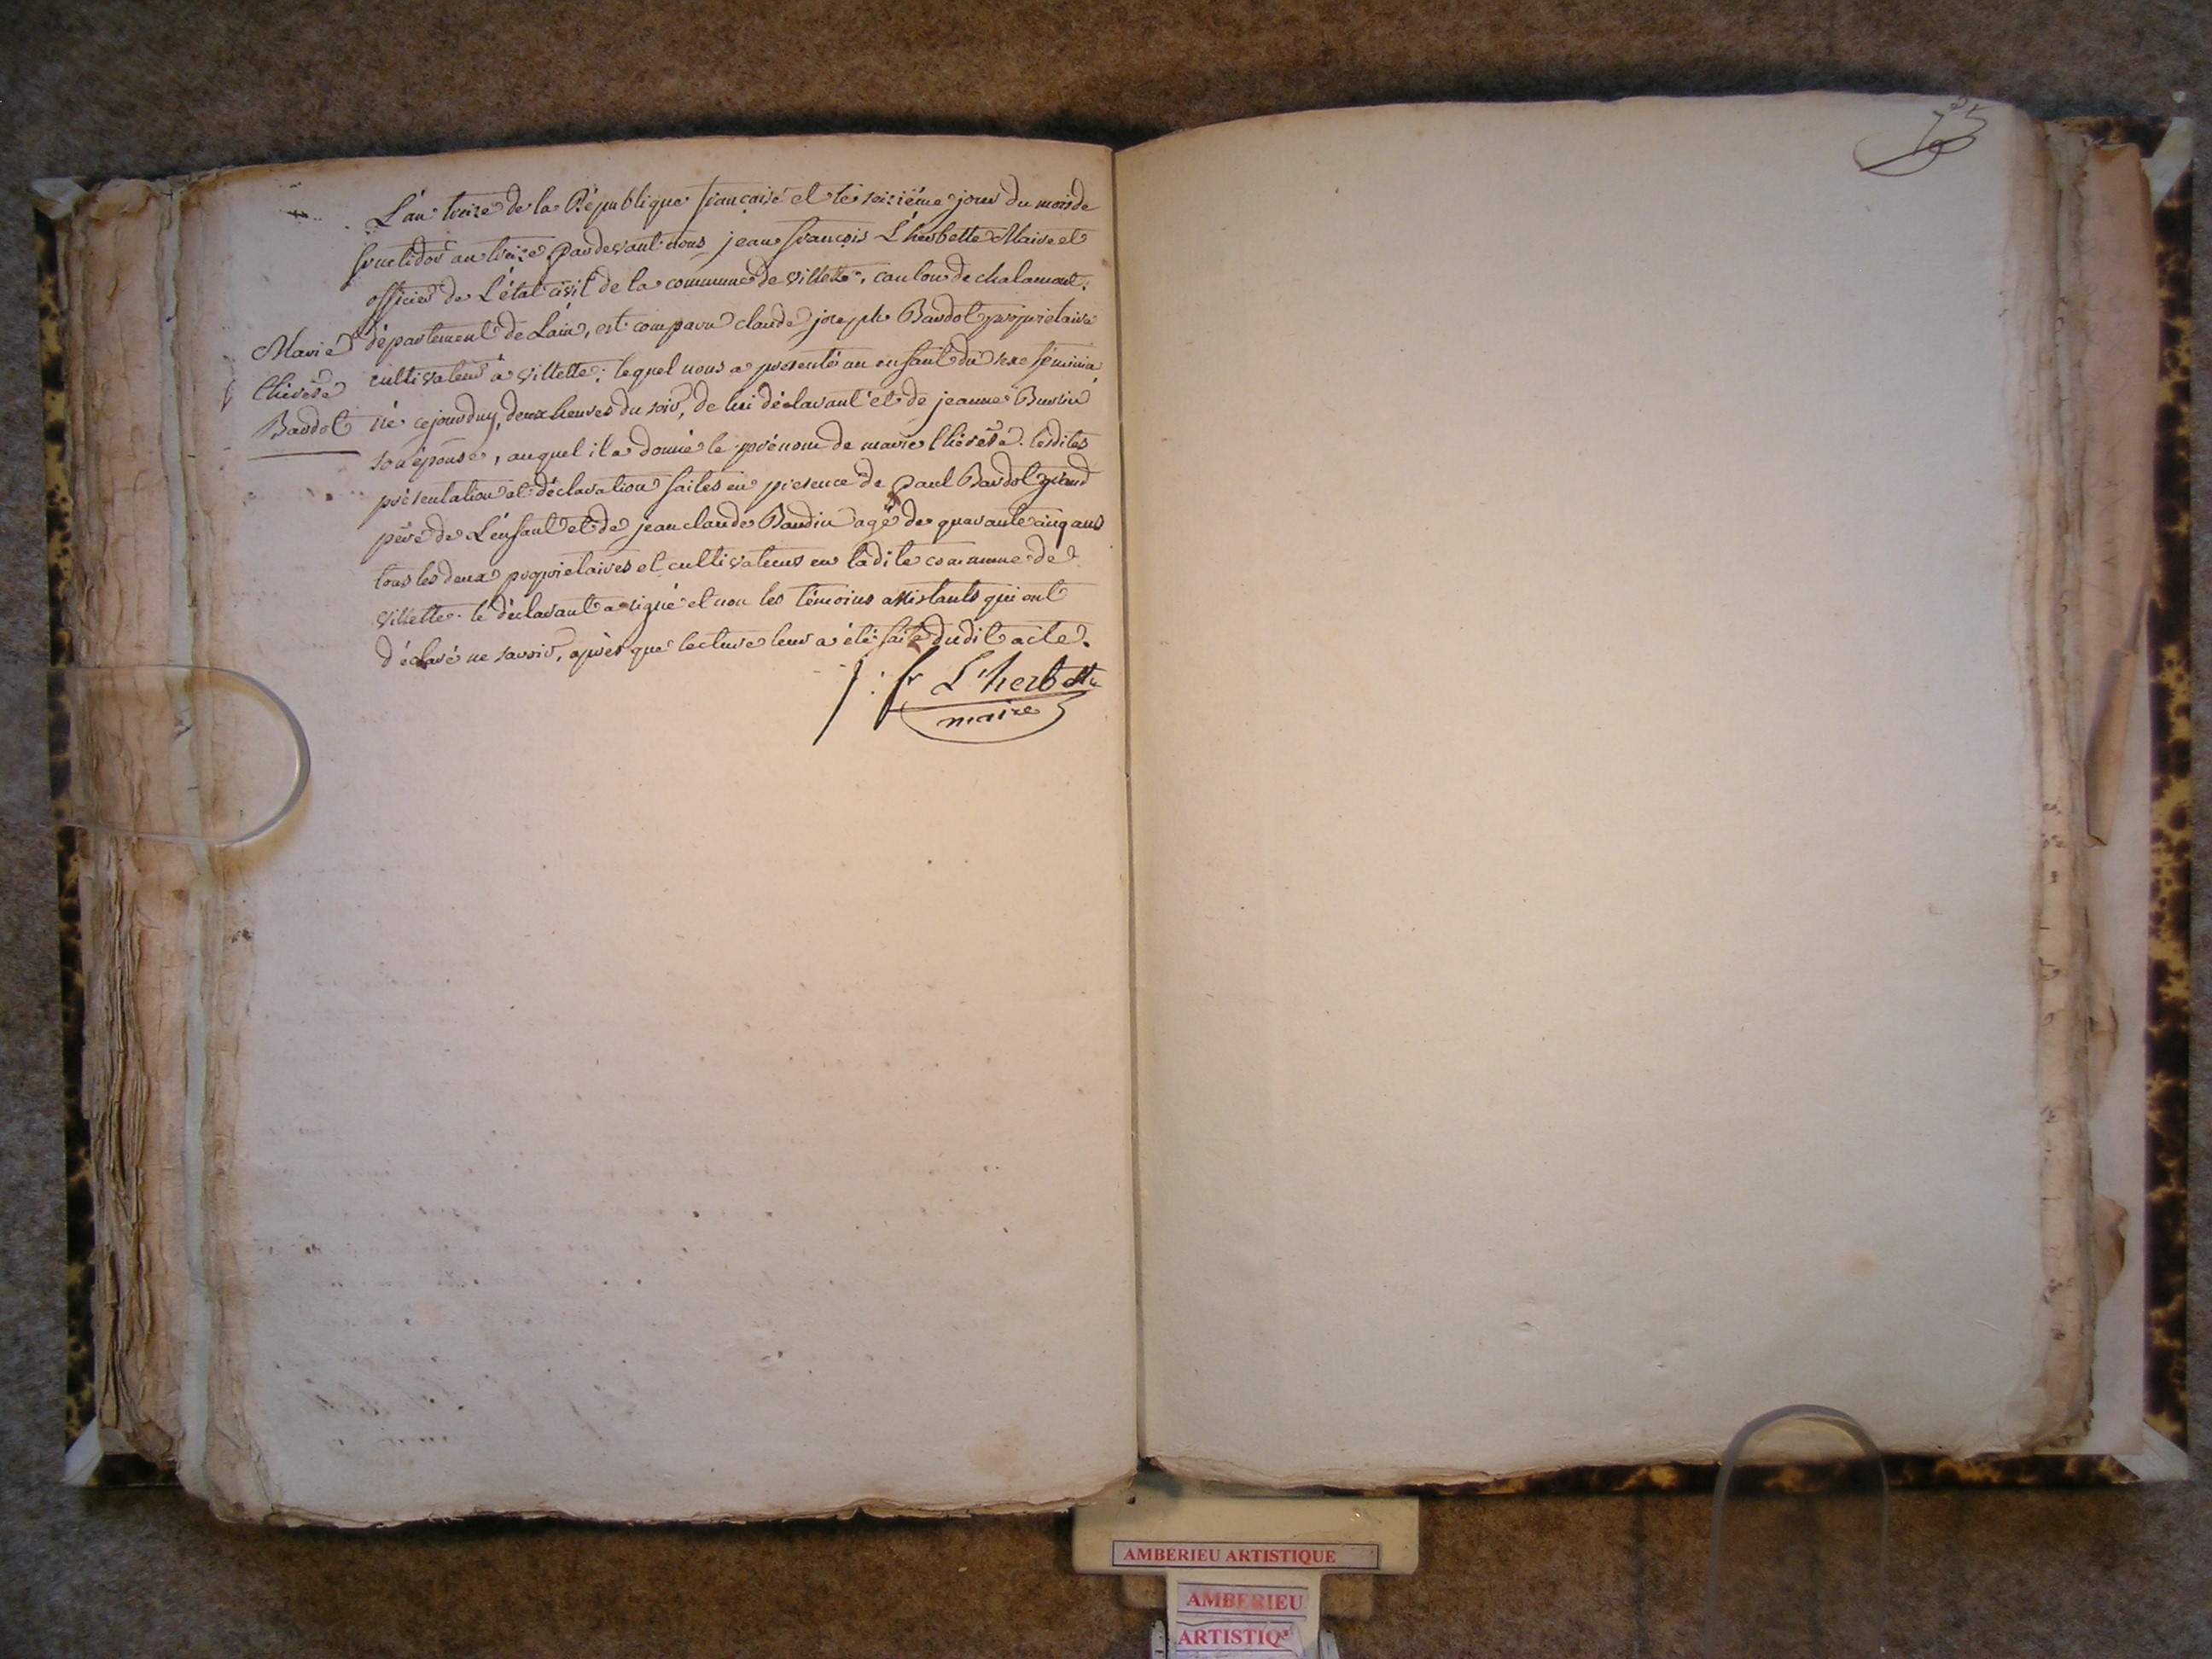 L'an treize de la République française et le seizième jour du mois de
fructidor an treize, pardevant nous jean françois L'herbette Maire et
officier de L'état civil de la commune de villette, canton de chalamont,
département de L'ain, est comparu claude joseph Bardot propriétaire
cultivateur à villette; lequel nous a présenté un enfant du sexe féminin
né cejourduy, deux heures du soir, de lui déclarant et de jeanne
son épouse, auquel il a donné le prénom de marie thérèse. lesdites
présentation et déclaration faites en présence de paul Bardot grand
père de L'enfant et de jean claude Baudin agé de quarante cinq ans
tous les deux propriétaires et cultivateurs en ladite commune de
villette. le déclarant a signé et non les témoins assistants qui ont
déclaré ne savoir, après que lecture leur a été faite dudit acte.
Marie
thérèse
Bardot
j: fr L'herbette
maire
AMBERIEU ARTISTIQUE
AMBERIEU
ARTISTIQ